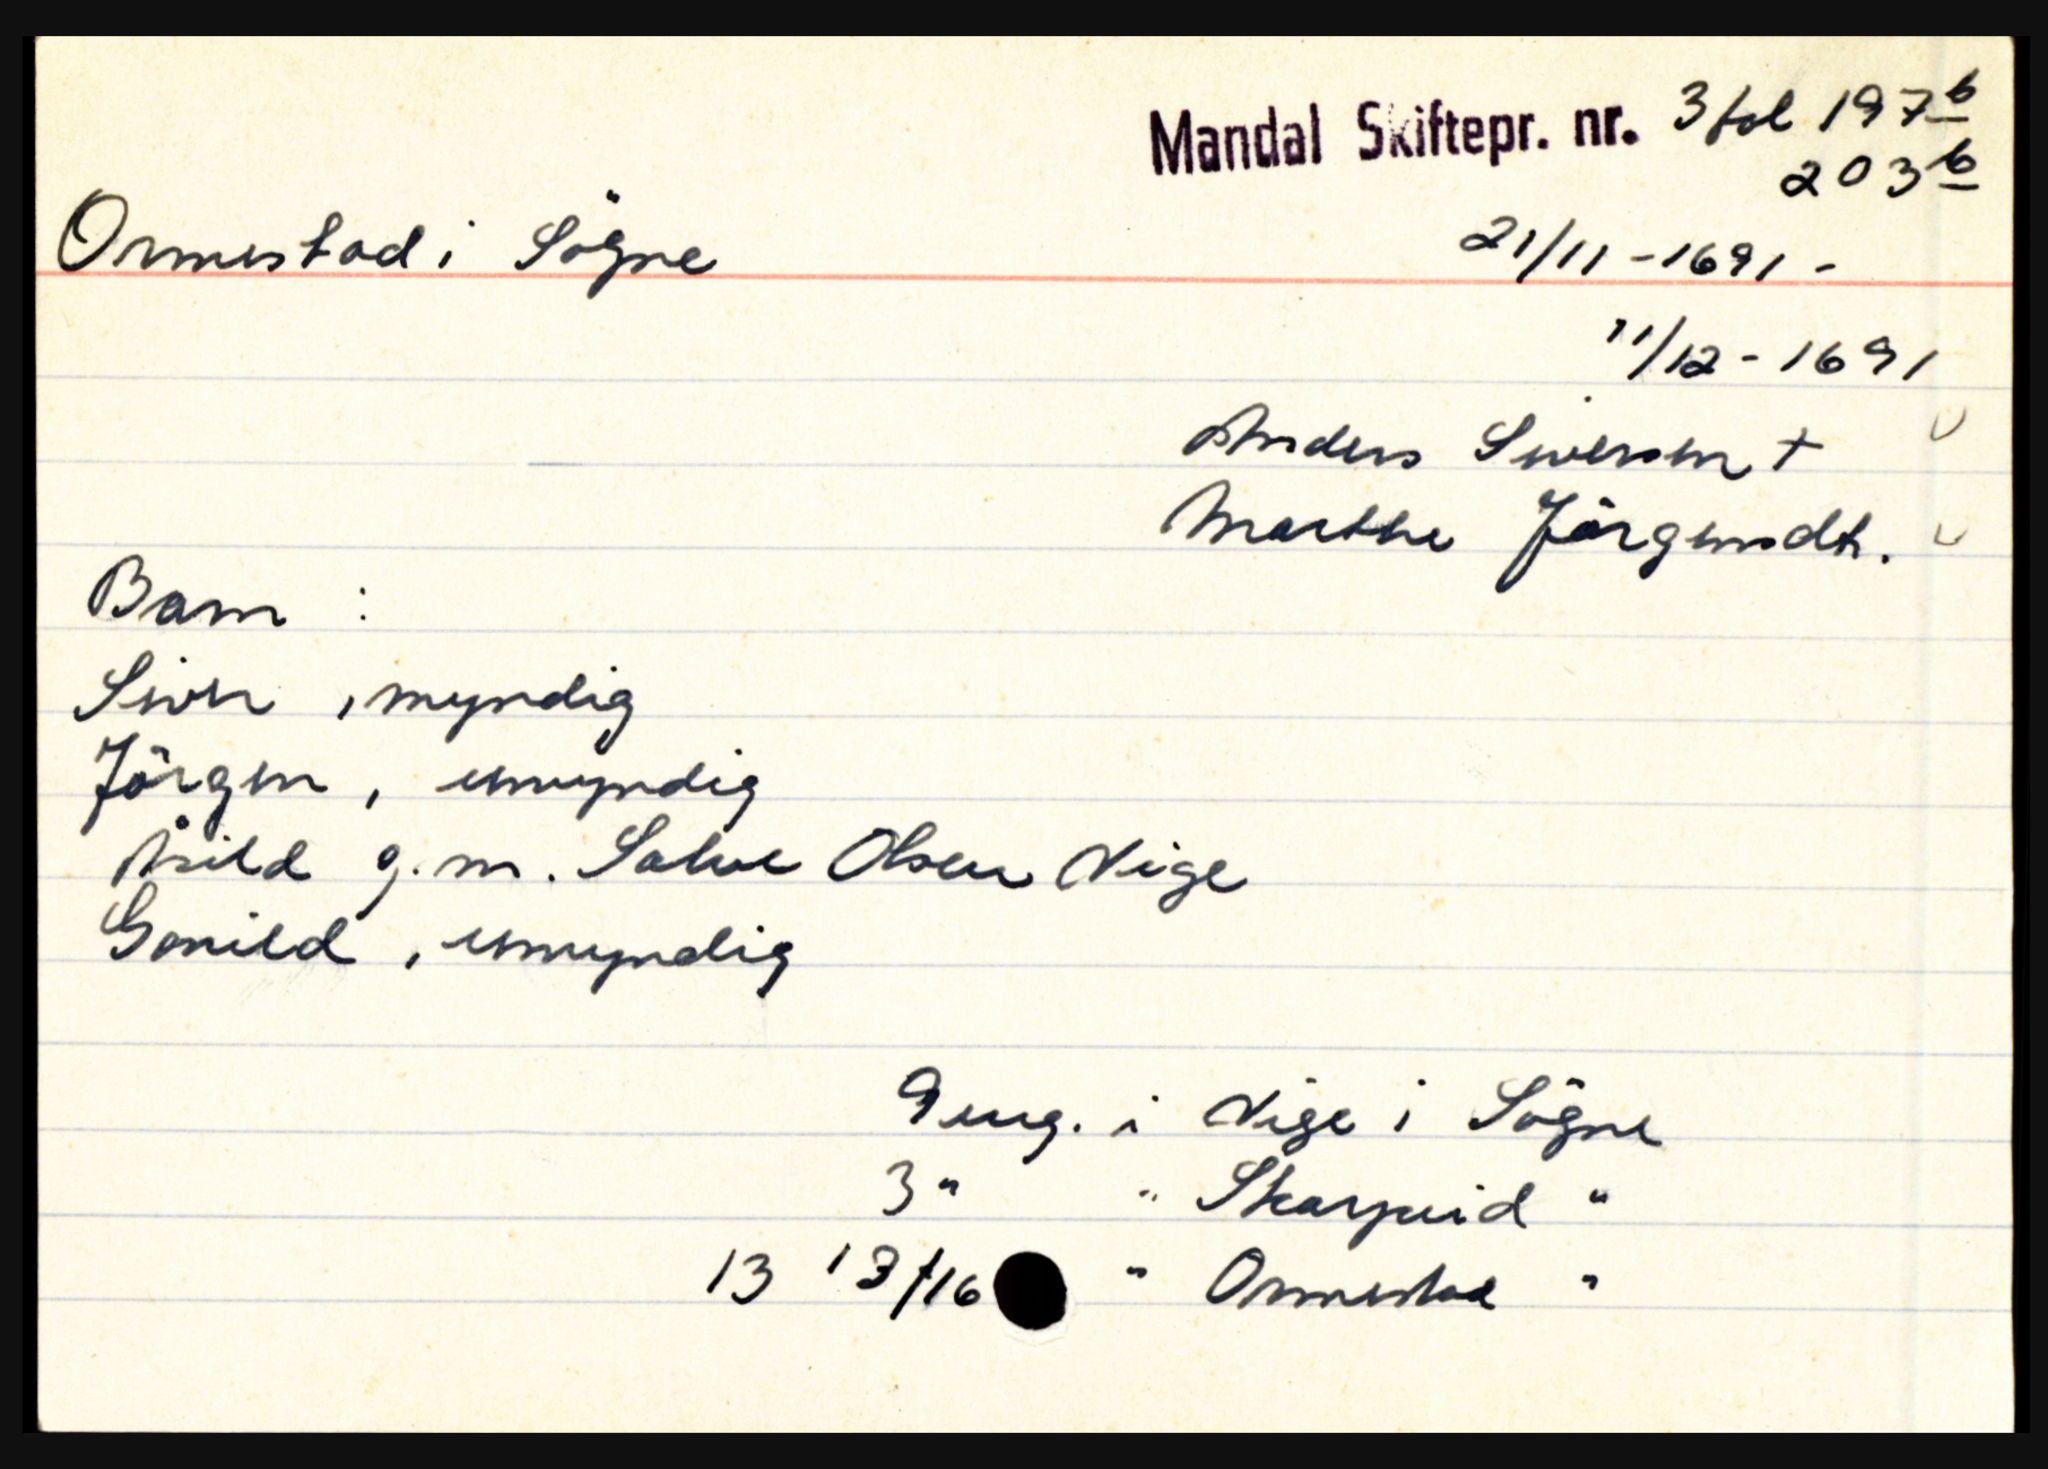 Mandal Skiftepr. nr. 3 fol 197b
203b
Ormestad i Sögne
21/11 - 1691 -
11/12 - 1691
Anders Siversen +
Marthe Jörgensdtr.
Barn :
Siver , myndig
Jörgen , umyndig
Åsild g. m. Salve Olsen Vige
Gonild , umyndig
9 eng. i Vige i Sögne
3 " " Skarpeid "
13 13/16 " Ormestad "